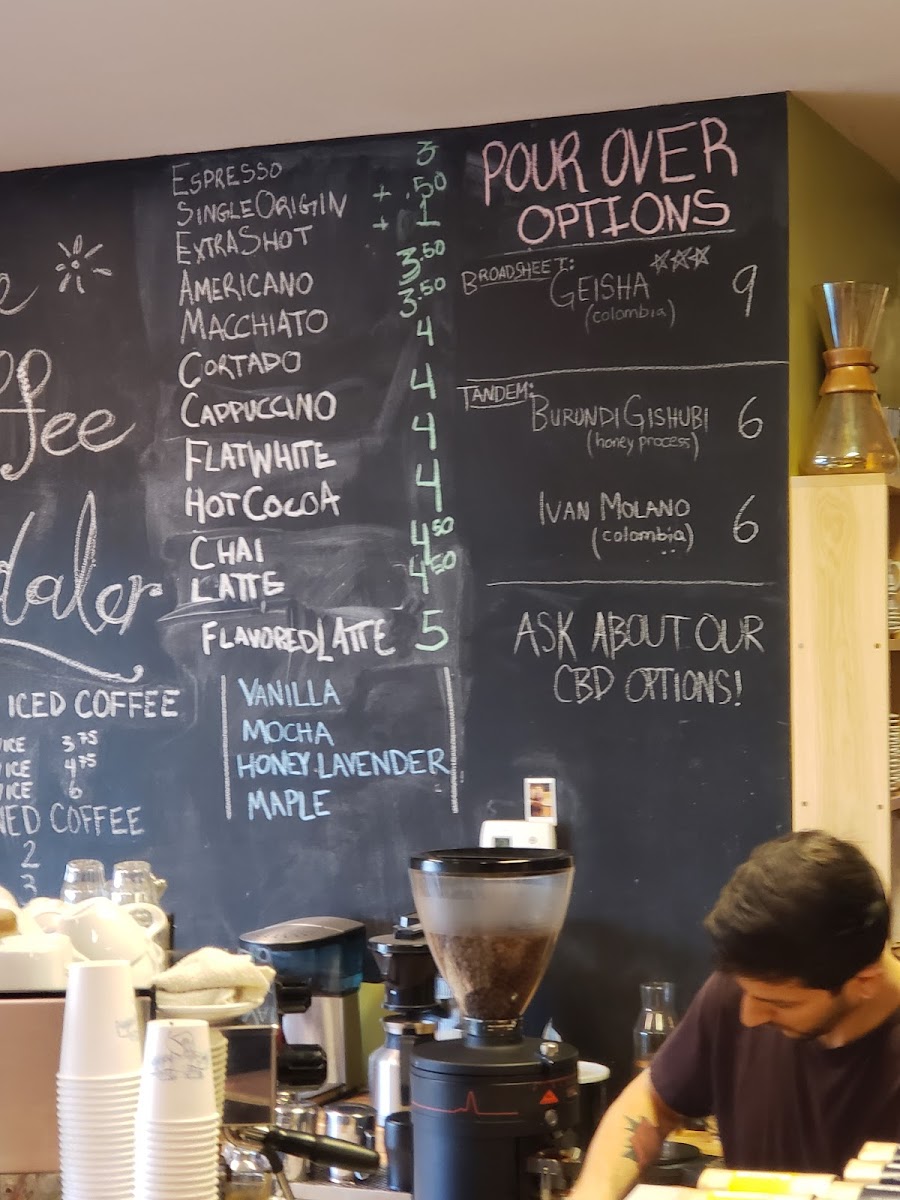 ffee
daler
ICED COFFEE
3.75
4.75
6
COFFEE
2
3
ESPRESSO 3
SINGLE ORIGIN + .50
EXTRA SHOT + 1
AMERICANO 3.50
MACCHIATO 3.50
CORTADO 4
CAPPUCCINO 4
FLAT WHITE 4
HOT COCOA 4
CHAI 4.50
LATTE 4.50
FLAVORED LATTE 5
VANILLA
MOCHA
HONEY LAVENDER
MAPLE
POUR OVER
OPTIONS
BROADSHEET:
GEISHA 9
(colombia)
TANDEM:
BURUNDI GISHUBI 6
(honey process)
IVAN MOLANO 6
(colombia)
ASK ABOUT OUR
CBD OPTIONS!